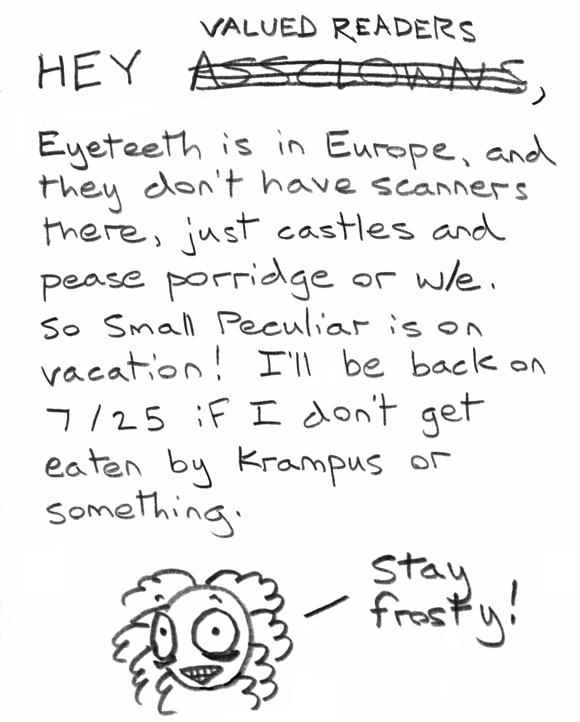 VALUED READERS
HEY ASSCLOWNS,
Eyeteeth is in Europe, and
they don't have scanners
there, just castles and
pease porridge or w/e.
So Small Peculiar is on
vacation! I'll be back on
7/25 if I don't get
eaten by Krampus or
something.
Stay
frosty!